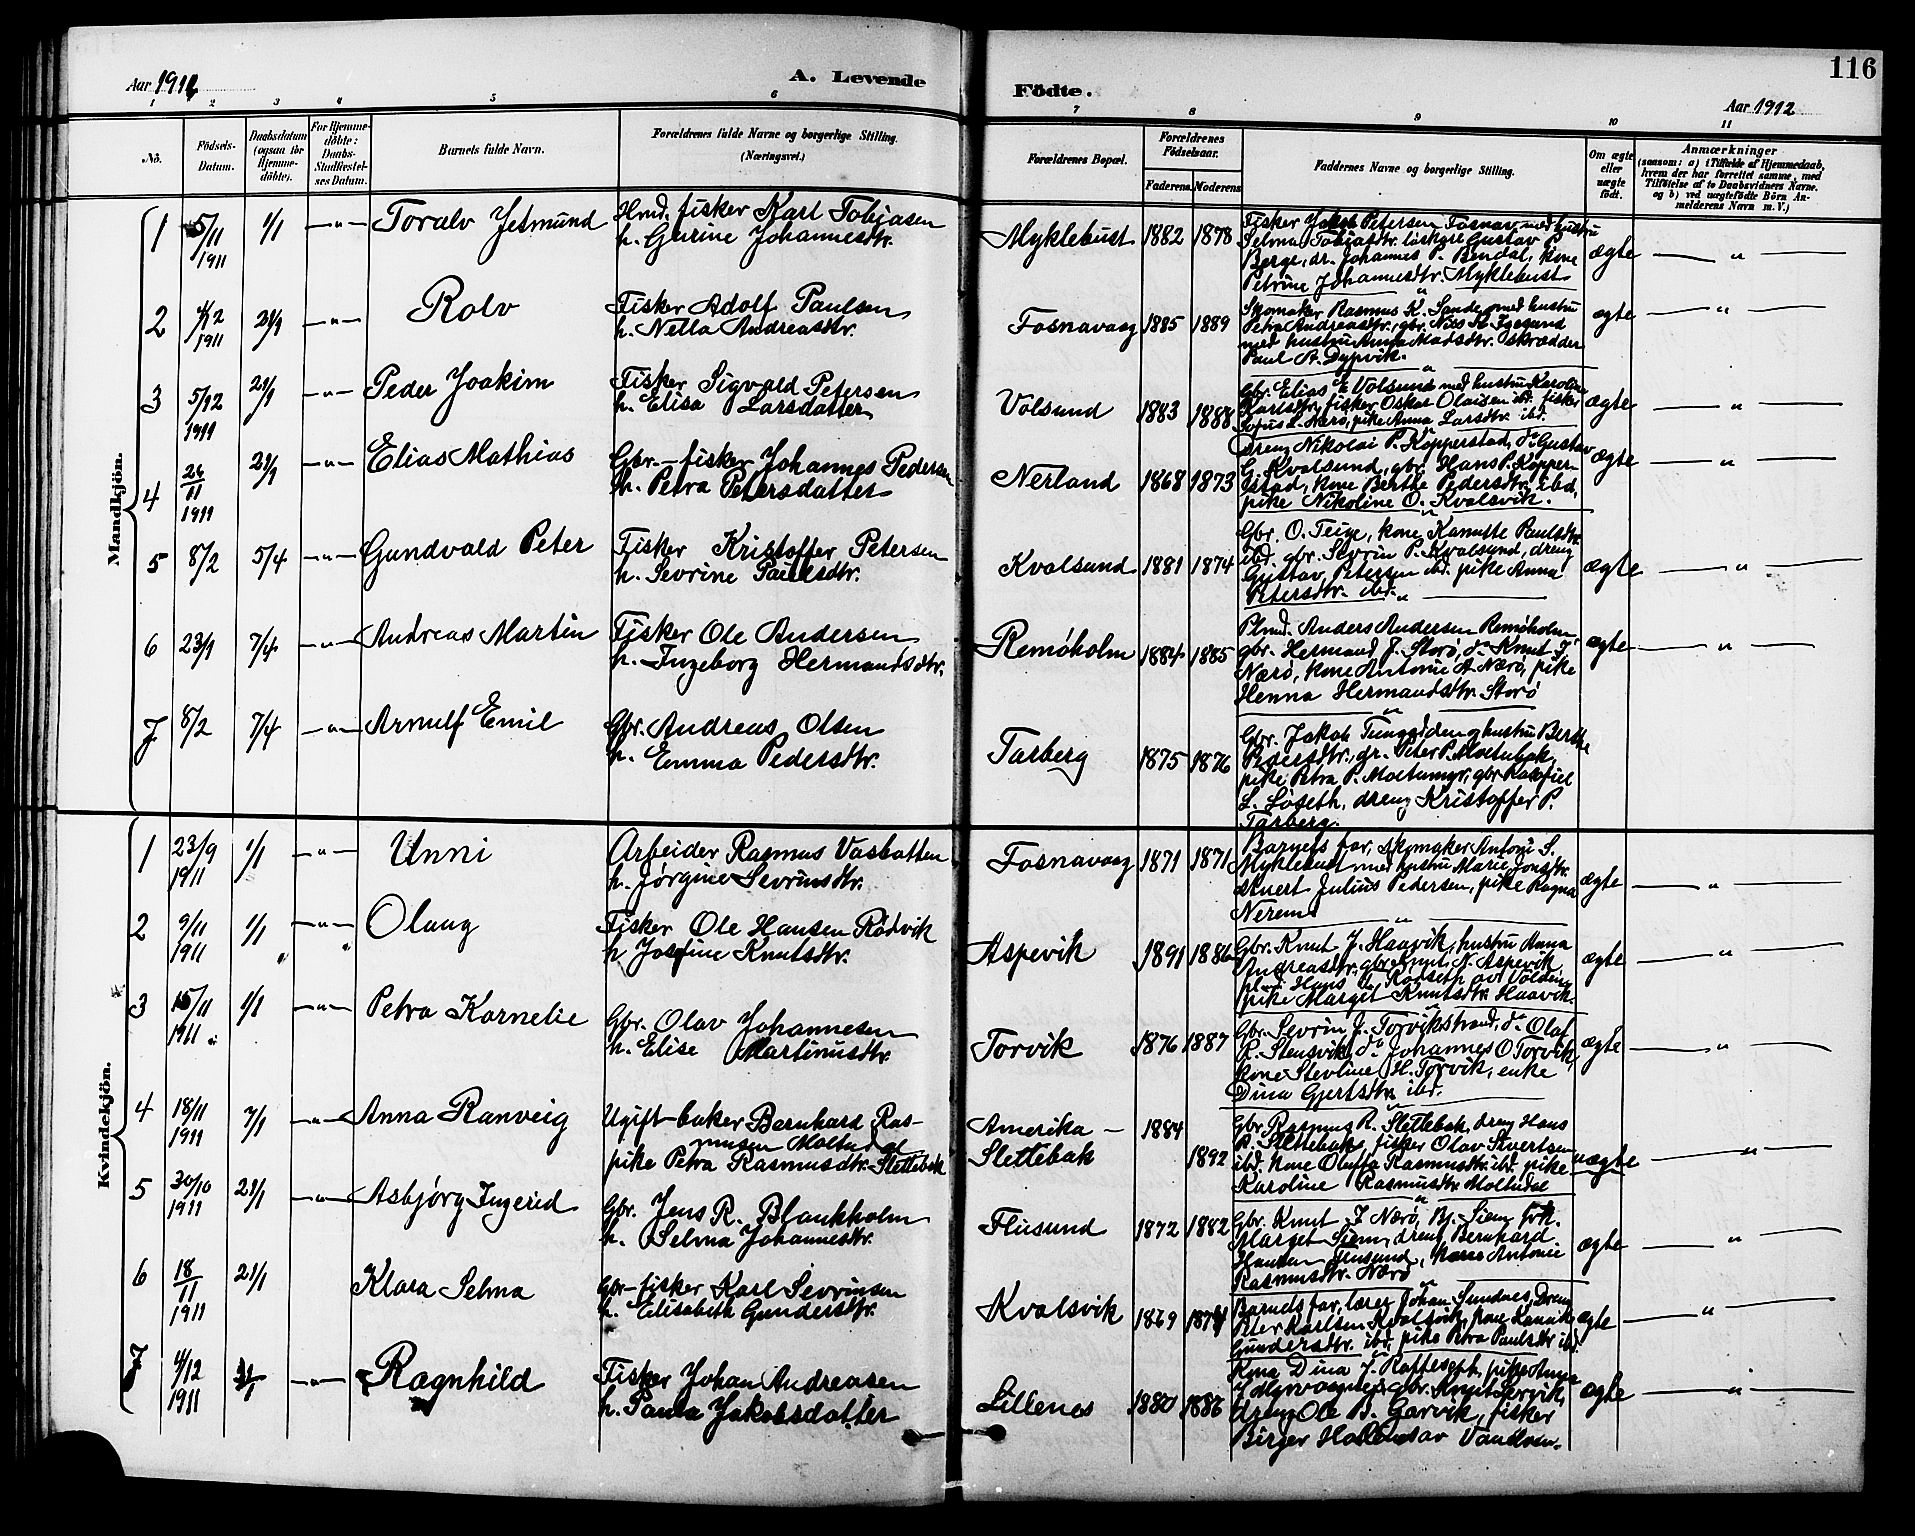 Aar 1912
A. Levende
Födte.
116
Aar 1912
1 2 3 4 5 6 7 8 9 10 11
No.
Födsels-
Datum.
Daabsdatum
(ogsaa for
Hjemme-
döbte).
For Hjemme-
döbte:
Daabs-
Stadfæstel-
ses Datum.
Barnets fulde Navn.
Forældrenes fulde Navne og borgerlige Stilling.
(Næringsvei.)
Forældrenes Bopæl.
Forældrenes
Födselsaar.
Faderens. Moderens.
Faddernes Navne og borgerlige Stilling.
Om ægte
eller
uægte
födt.
Anmærkninger
(saasom: a) i Tilfælde af Hjemmedaab,
hvem der har forrettet samme, med
Tilföielse af to Daabsvidners Navne.
og b) ved uægtefödte Börn An-
melderens Navn m. V.)
Mandkjön.
1 5/11 1911 1/1 —"— Toralv Jetmund
Hmd. fisker Karl Tobiasen
h. Gurine Johannesdtr.
Myklebust 1882 1878
Fisker Jakob Petersen Fosnav. med hustru
Selma Tobiasdtr. Gustav P.
Berge, dr. Johannes P. Bendal, kone
Petrine Johannesdtr. Myklebust
ægte — " —
2 4/12 1911 21/1 —"— Rolv
Fisker Adolf Paulsen
h. Nella Andreasdtr.
Fosnavaag 1885 1889
Skomaker Rasmus K. Sande med hustru
Petra Andreasdtr., gbr. Nils
med hustru Anna Madsdtr. skrædder
Paul A. Dypvik.
ægte — " —
3 5/12 1911 21/1 —"— Peder Joakim
Fisker Sigvald Petersen
h. Elisa Larsdatter
Volsund 1883 1888
Gbr. Elias Volsund med hustru Karoline
Karlsdtr, fisker Oskar Olaisen ibd. fisker
Sofus L. Nærø, pike Anna Larsdtr. ibd.
ægte — " —
4 26/11 1911 21/1 —"— Elias Mathias
Gbr.-fisker Johannes Pedersen
h. Petra Petersdatter
Nerland 1868 1873
Dreng Nikolai P. Kopperstad, do Gustav
G. Kvalsund, gbr. Hans P. Kopper-
stad, kone Berthe Pedersdtr. ibd,
pike Nikoline O. Kvalsvik.
ægte — " —
5 8/2 5/4 —"— Gundvald Peter
Fisker Kristoffer Petersen
h. Sevrine Paulsdtr.
Kvalsund 1881 1874
Gbr. O. Teige, kone Kanutte Paulsdtr.
ibd. gbr. Sevrin P. Kvalsund, dreng
Gustav Petersen ibd. pike Anna
Petersdtr. ibd.
ægte — " —
6 23/1 7/4 —"— Andreas Martin
Fisker Ole Andersen
h. Ingeborg Hermandsdtr.
Remøholm 1884 1885
Plmd. Anders Andersen Remøholm,
gbr. Hermand J. Storø, do Knut J.
Nærø, kone Antonie A. Nærø, pike
Henna Hermandsdtr. Storø
ægte — " —
7 8/2 7/4 —"— Arnulf Emil
Gbr. Andreas Olsen
h. Emma Pedersdtr.
Tarberg 1875 1876
Gbr. Jakob og hustru Berthe
Pedersdtr., dr. Peter P. Moltubak,
pike Petra P. Moltumyr, gbr.
L. Løseth, dreng Kristoffer P.
Tarberg.
Kvindekjön.
1 23/9 1911 1/1 —"— Unni
Arbeider Rasmus Vasbotten
h. Jørgine Sevrinsdtr.
Fosnavaag 1871 1871
Barnets far, skomaker Anton S.
Myklebust med hustru Marie Jonsdtr.
Julius Pedersen, pike Ragna
Nerem
ægte — " —
2 9/11 1911 1/1 —"— Olaug
Fisker Ole Hansen Rødvik
h Josefine Knutsdtr.
Aspevik 1891 1886
Gbr. Knut J. Haavik, hustru Anna
Andreasdtr. gbr. Knut N. Aspevik
plmd. Hans Rødseth av Volden,
pike Marget Knutsdtr. Haavik.
ægte — " —
3 15/11 1911 1/1 —"— Petra Kornelie
Gbr. Olav Johannesen
h. Elise Martinusdtr.
Torvik 1876 1887
Gbr. Sevrin J. Torvikstrand, do Olaf
R. Stensvik, do Johannes O Torvik,
kone Stevline H. Torvik, enke
Dina Gjertsdtr ibd.
ægte — " —
4 18/11 1911 7/1 —"— Anna Ranveig
Ugift-baker Bernhard Ras-
mussen Moltudal
pike Petra Rasmusdtr. Slettebak
Amerika — 1884
Slettebak 1892
Gbr. Rasmus R. Slettebak, dreng Hans
R. Slettebak, fisker Olav Sivertsen
ibd. kone Oluffa Rasmusdtr. ibd. pike
Karoline Rasmusdtr Moltudal
uægte — " —
5 30/10 1911 21/1 —"— Asbjørg Ingerid
Gbr. Jens R. Blankholm
h. Selma Johannesdtr.
Flusund 1872 1882
Gbr. Knut J Nærø, Bj. Siem frk.
Marget Siem, dreng Bernhard
Hansen Flusund, kone Antonie
Rasmusdtr. Nærø
ægte — " —
6 18/11 1911 21/1 Klara Selma
Gbr-fisker Karl Sevrinsen
h. Elisabeth Gundersdtr.
Kvalsvik 1869 1874
Barnets far, lærer Johan Sundnes, Dreng
Peter Karlsen Kvalsvik, kone
Gundersdtr. ibd, pike Petra Paulsdtr ibd.
ægte — " —
7 4/12 1911 —"— Ragnhild
Fisker Johan Andreasen
h. Paula Jakobsdatter
Lillenes 1880 1886
Kona Dina J. pike Anna
gbr. Knut
dreng Ole B. Garvik, fisker
Birger
ægte — " —